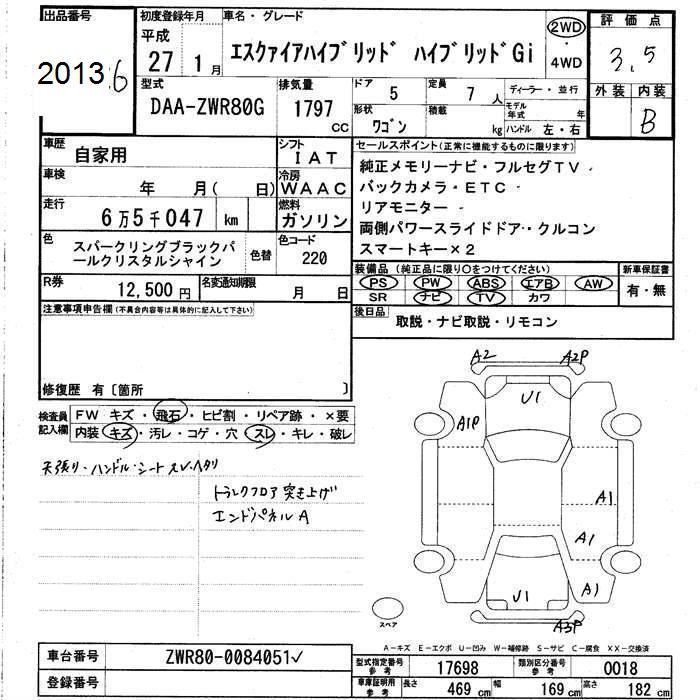 出品番号
20136
初度登録年月
平成
27 1月
車名・グレード
エスクァイアハイブリッド ハイブリッドGi
2WD
・
4WD
評価点
3.5
外装 内装
B
型式
DAA-ZWR80G
排気量
1797
CC
ドア 5
定員 7 人
ディーラー・並行
形状 ワゴン
積載 kg
モデル
年式 年
ハンドル 左・右
車歴
自家用
シフト
IAT
車検
年 月( 日)
冷房
WAAC
走行
6万5千047 km
燃料
ガソリン
色
スパークリングブラックパ
ールクリスタルシャイン
色替
色コード
220
R券
12,500円
名変通知期限
月 日
セールスポイント(正常に機能するものに限ります)
純正メモリーナビ・フルセグTV・
バックカメラ・ETC・
リアモニター・
両側パワースライドドア・クルコン
スマートキー×2
装備品 (純正品に限り○をつけてください)
PS PW ABS エアB AW
SR ナビ TV カワ
新車保証書
有・無
後日品
取説・ナビ取説・リモコン
注意事項申告欄(不具合内容等は具体的に記入して下さい)
修復歴 有〔箇所 〕
検査員
記入欄
FW キズ・飛石・ヒビ割・リペア跡・×要
内装 キズ・汚レ・コゲ・穴・スレ・キレ・破レ
天張り・ハンドル・シート スレ・ヘタリ
トランクフロア 突き上げ
エンドパネル A
A2 A2P
U1
A1P
A1
A1
U1 A1
A3P
スペア
A-キズ E-エクボ U-凹み W-補修跡 S-サビ C-腐食 XX-交換済
車台番号
ZWR80-0084051✓
登録番号
型式指定番号
参考
17698
類別区分番号
参考
0018
車庫証明用
参考
長さ 469 cm
幅 169 cm
高さ 182 cm